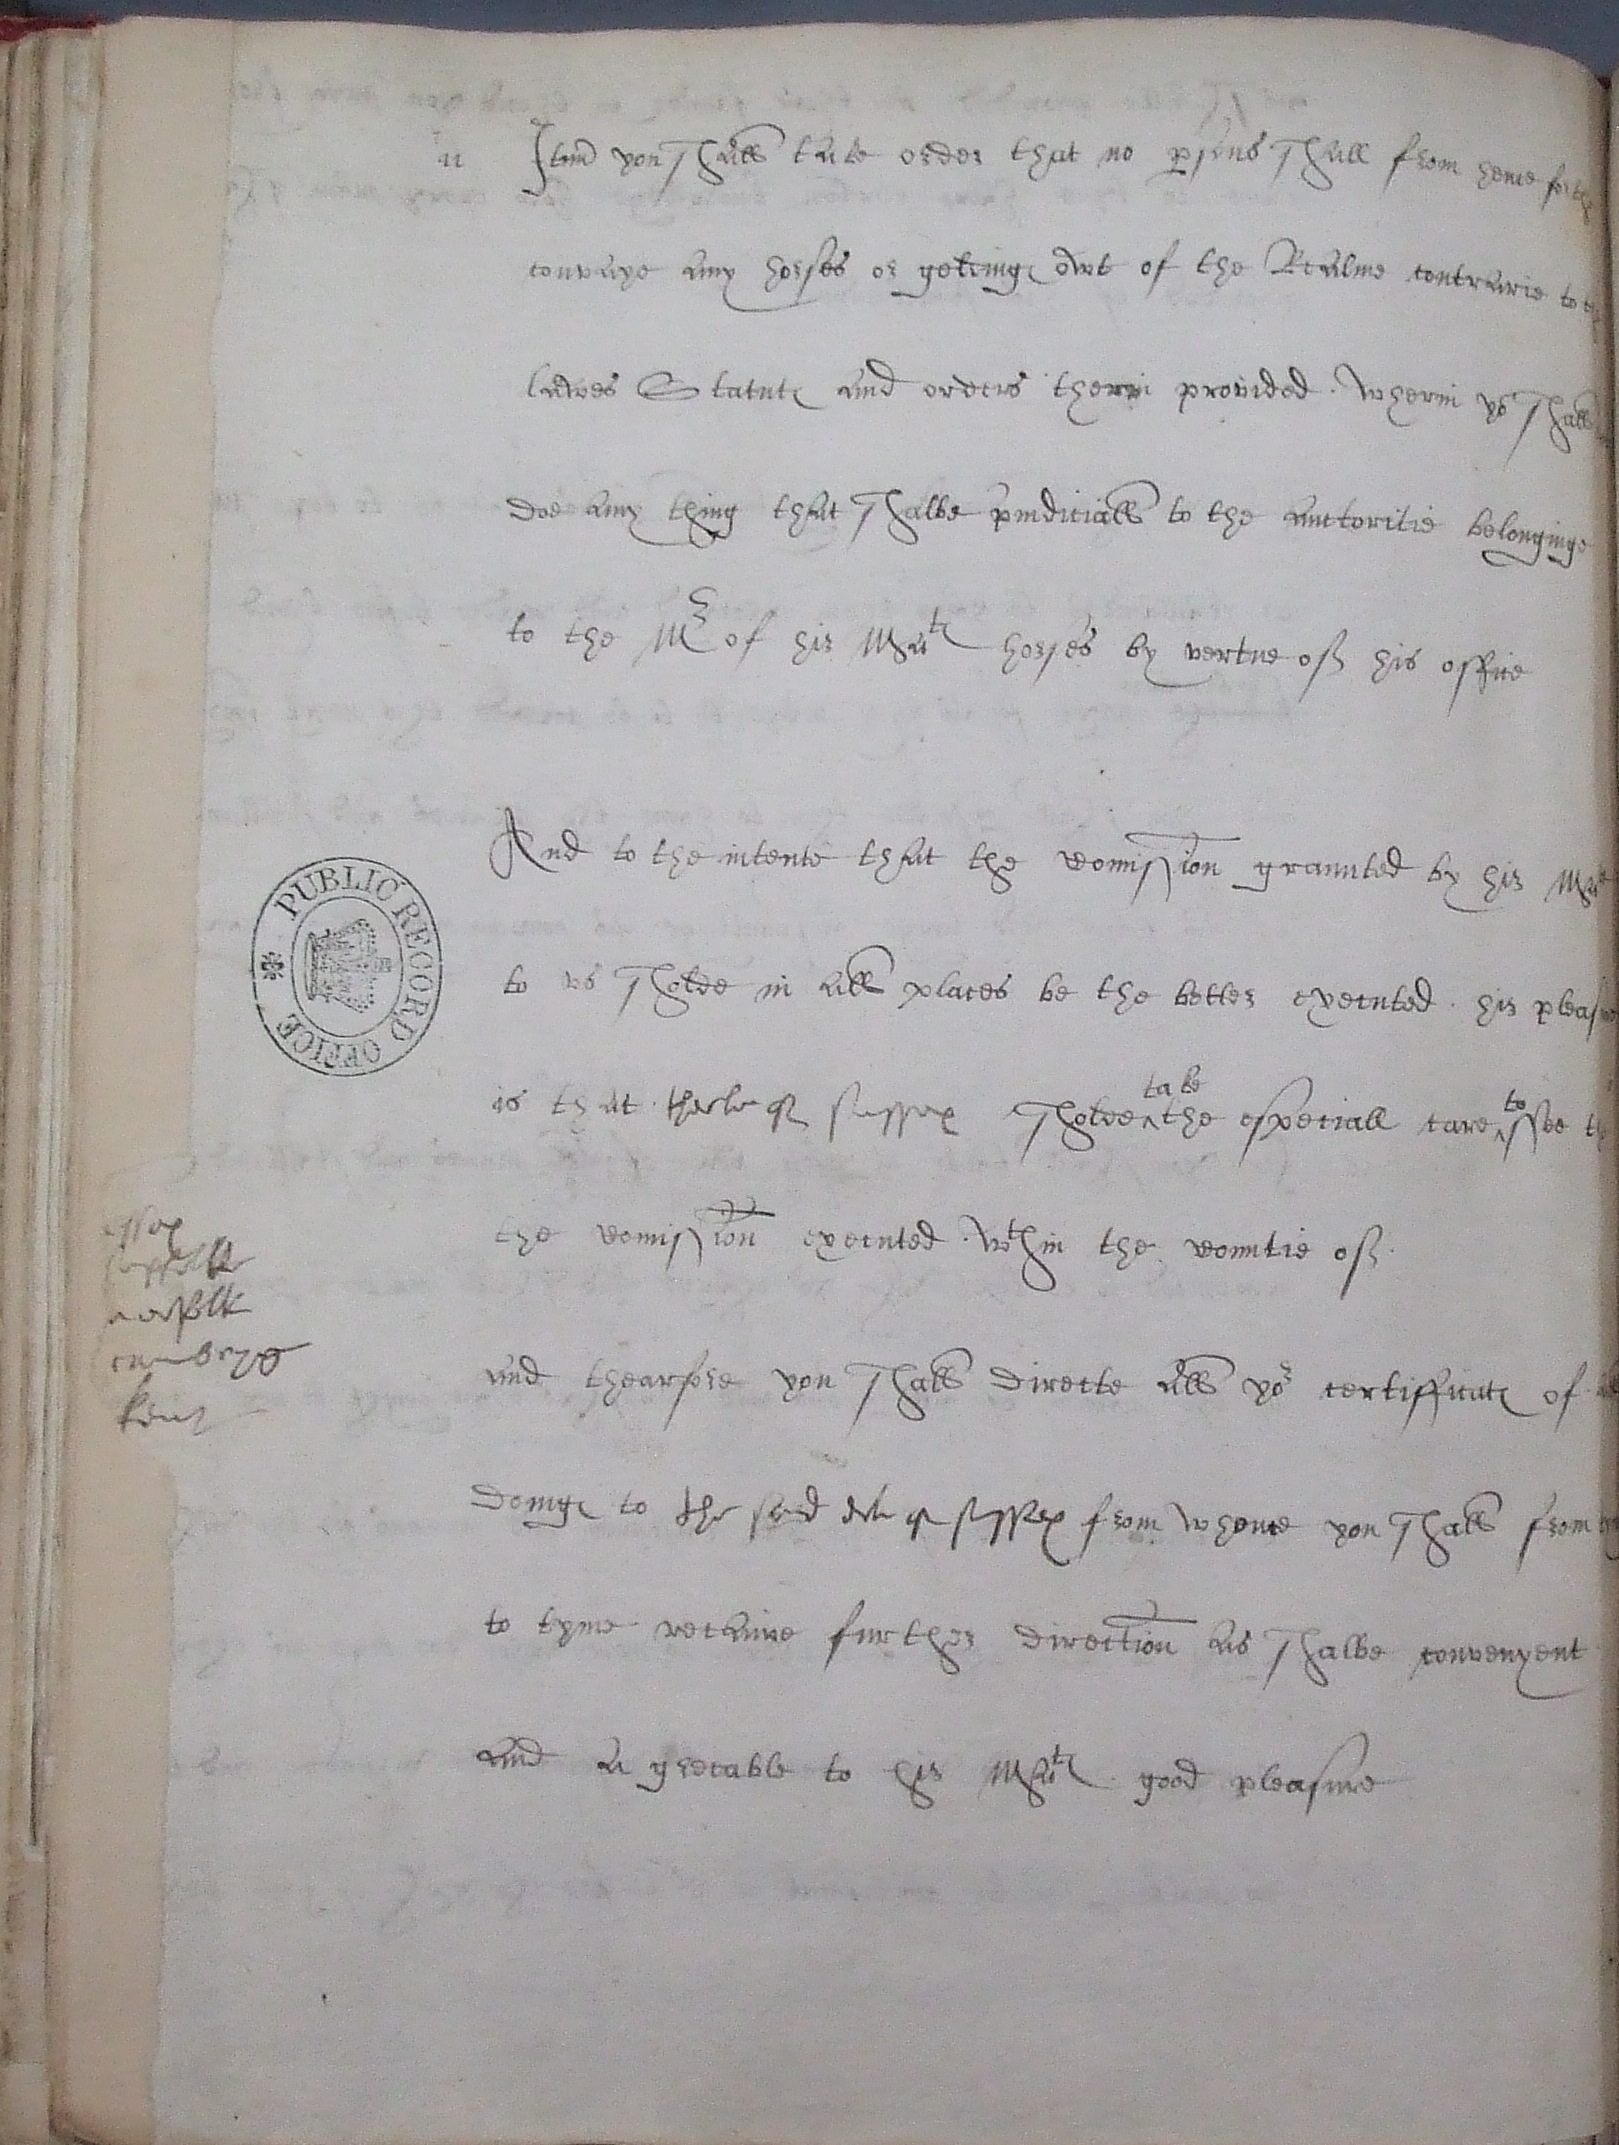 11 Itm you shall take order that no psons shall from hence forthe
convaye any horses or geldinge owt of the Realme contrarie to
lawes Statute and orders therin provided . wherin yo shall
doe any thing that shalbe preiudiciall to the auctoritie belonginge
to the Mr of his Matie horses by vertue off his office
And to the intente that the comission graunted by his Matie
to us sholde in all places be the better executed . his pleasure
is that therle of sussex sholde ^take the especiall care ^to see
the comission executed . wthin the countie off .
essex
suffolk
norfolk
cambryg
kent
and thearfore you shall directe all yor certifficate of all
doinge to the said erle of sussex from whence you shall from tyme
to tyme receaive further direction as shalbe convenyent
and agreeable to his Matie good pleasure
PUBLIC RECORD OFFICE